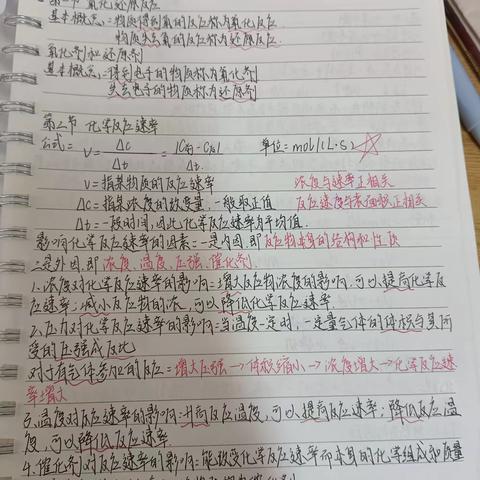 第一节 氧化还原反应
基本概念:物质得到氧的反应称为氧化反应
物质失去氧的反应称为还原反应.
氧化剂和还原剂
基本概念:得到电子的物质称为氧化剂
失去电子的物质称为还原剂
第二节 化学反应速率
公式= V = Δc/Δt = |C终-C始|/Δt 单位=mol/(L·s)
V=指某物质的反应速率 浓度与速率正相关
Δc=指某浓度的改变量,一般取正值 反应速度与表面积正相关
Δt=一段时间,因此化学反应速率为平均值.
影响化学反应速率的因素:一是内因,即反应物本身的结构和性质
二是外因,即浓度、温度、压强、催化剂.
1.浓度对化学反应速率的影响:增大反应物浓度的影响,可以提高化学反
应速率;减小反应物的浓,可以降低化学反应速率
2.压力对化学反应速率的影响:当温度一定时,一定量气体的体积与其所
受的压强成反比
对于有气体参加的反应=增大压强→体积缩小→浓度增大→化学反应速
率增大
3.温度对反应速率的影响:升高反应温度,可以提高反应速率;降低反应温
度,可以降低反应速率.
4.催化剂对反应速率的影响:能改变化学反应速率而本身的化学组成和质量